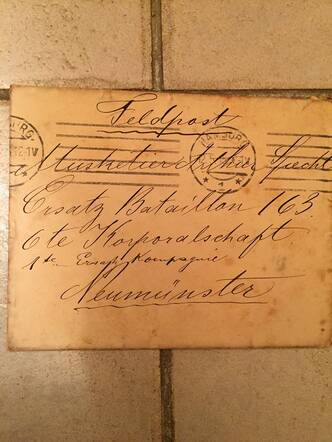 Feldpost
Musketier
Ersatz Bataillon 163.
6te Korporalschaft.
1te Ersatz Kompagnie
Neumünster